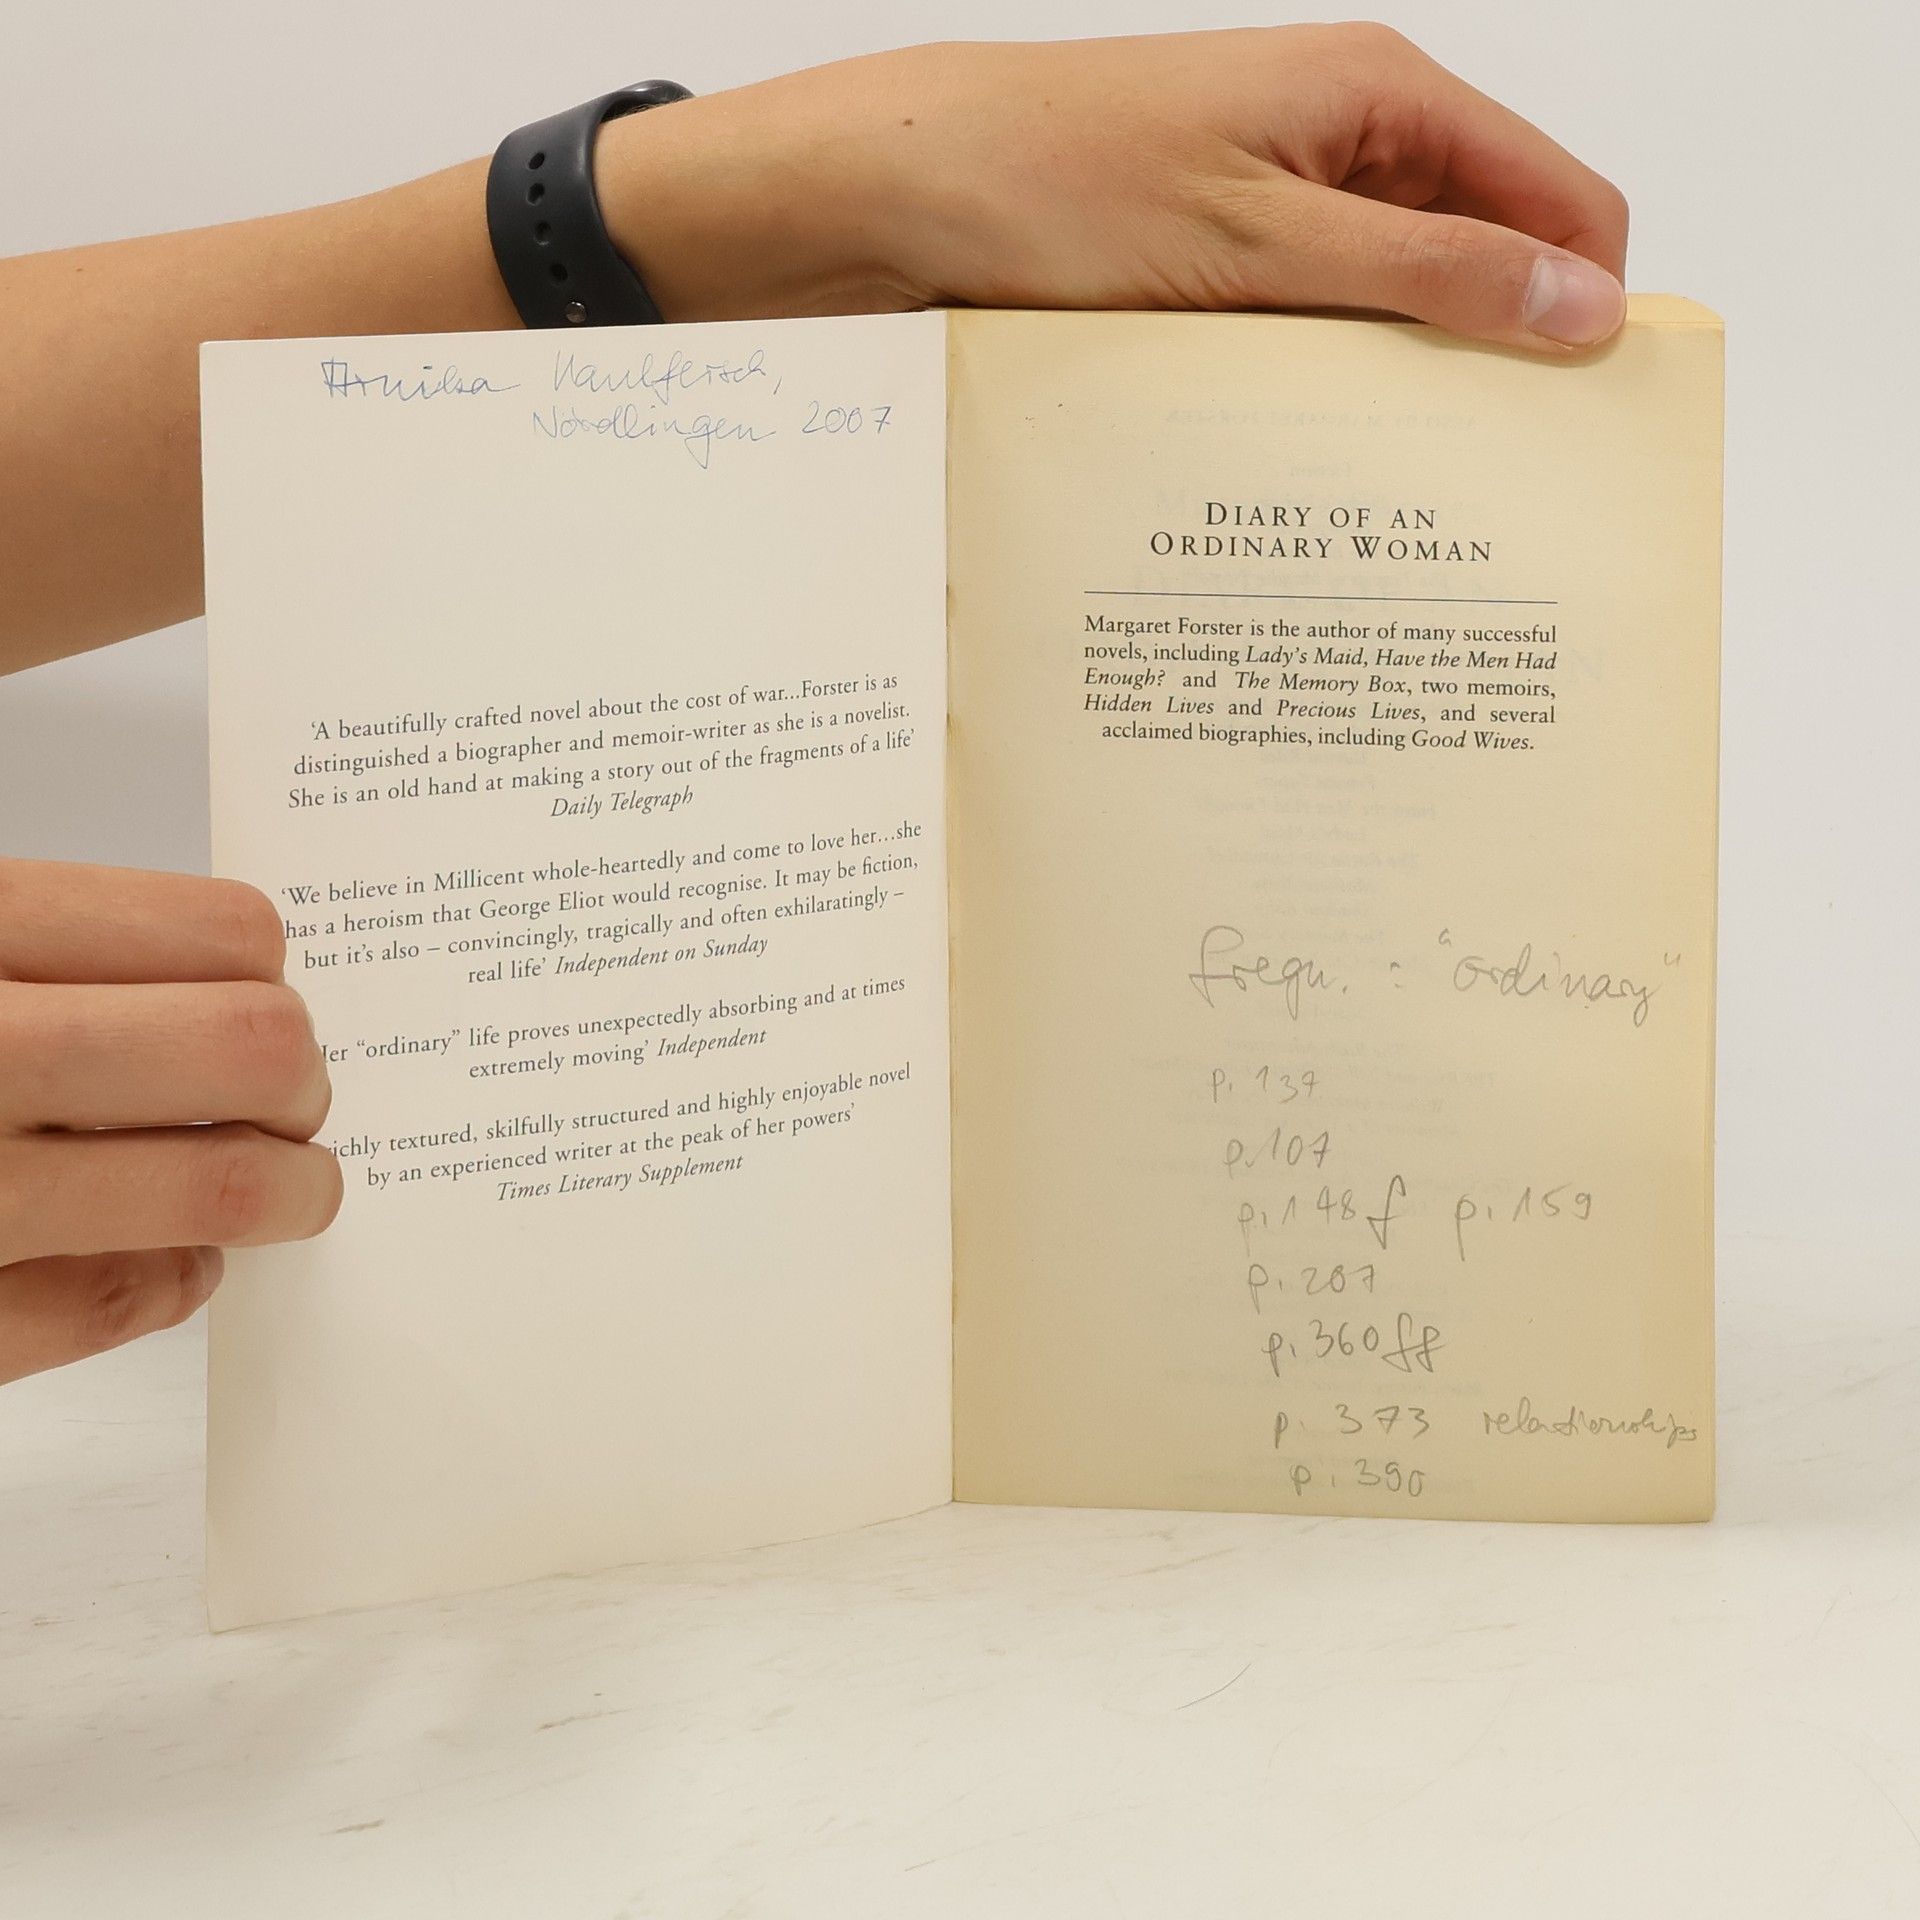 Nördlingen 2007
'A beautifully crafted novel about the cost of war...Forster is as
distinguished a biographer and memoir-writer as she is a novelist.
She is an old hand at making a story out of the fragments of a life'
Daily Telegraph
'We believe in Millicent whole-heartedly and come to love her...she
has a heroism that George Eliot would recognise. It may be fiction,
but it's also – convincingly, tragically and often exhilaratingly –
real life' Independent on Sunday
"ordinary" life proves unexpectedly absorbing and at times
extremely moving' Independent
textured, skilfully structured and highly enjoyable novel
by an experienced writer at the peak of her powers'
Times Literary Supplement
DIARY OF AN
ORDINARY WOMAN
Margaret Forster is the author of many successful
novels, including Lady's Maid, Have the Men Had
Enough? and The Memory Box, two memoirs,
Hidden Lives and Precious Lives, and several
acclaimed biographies, including Good Wives.
frequ. : "ordinary"
p. 137
p. 107
p. 148f p. 159
p. 207
p. 360ff
p. 373 relationships
p. 390